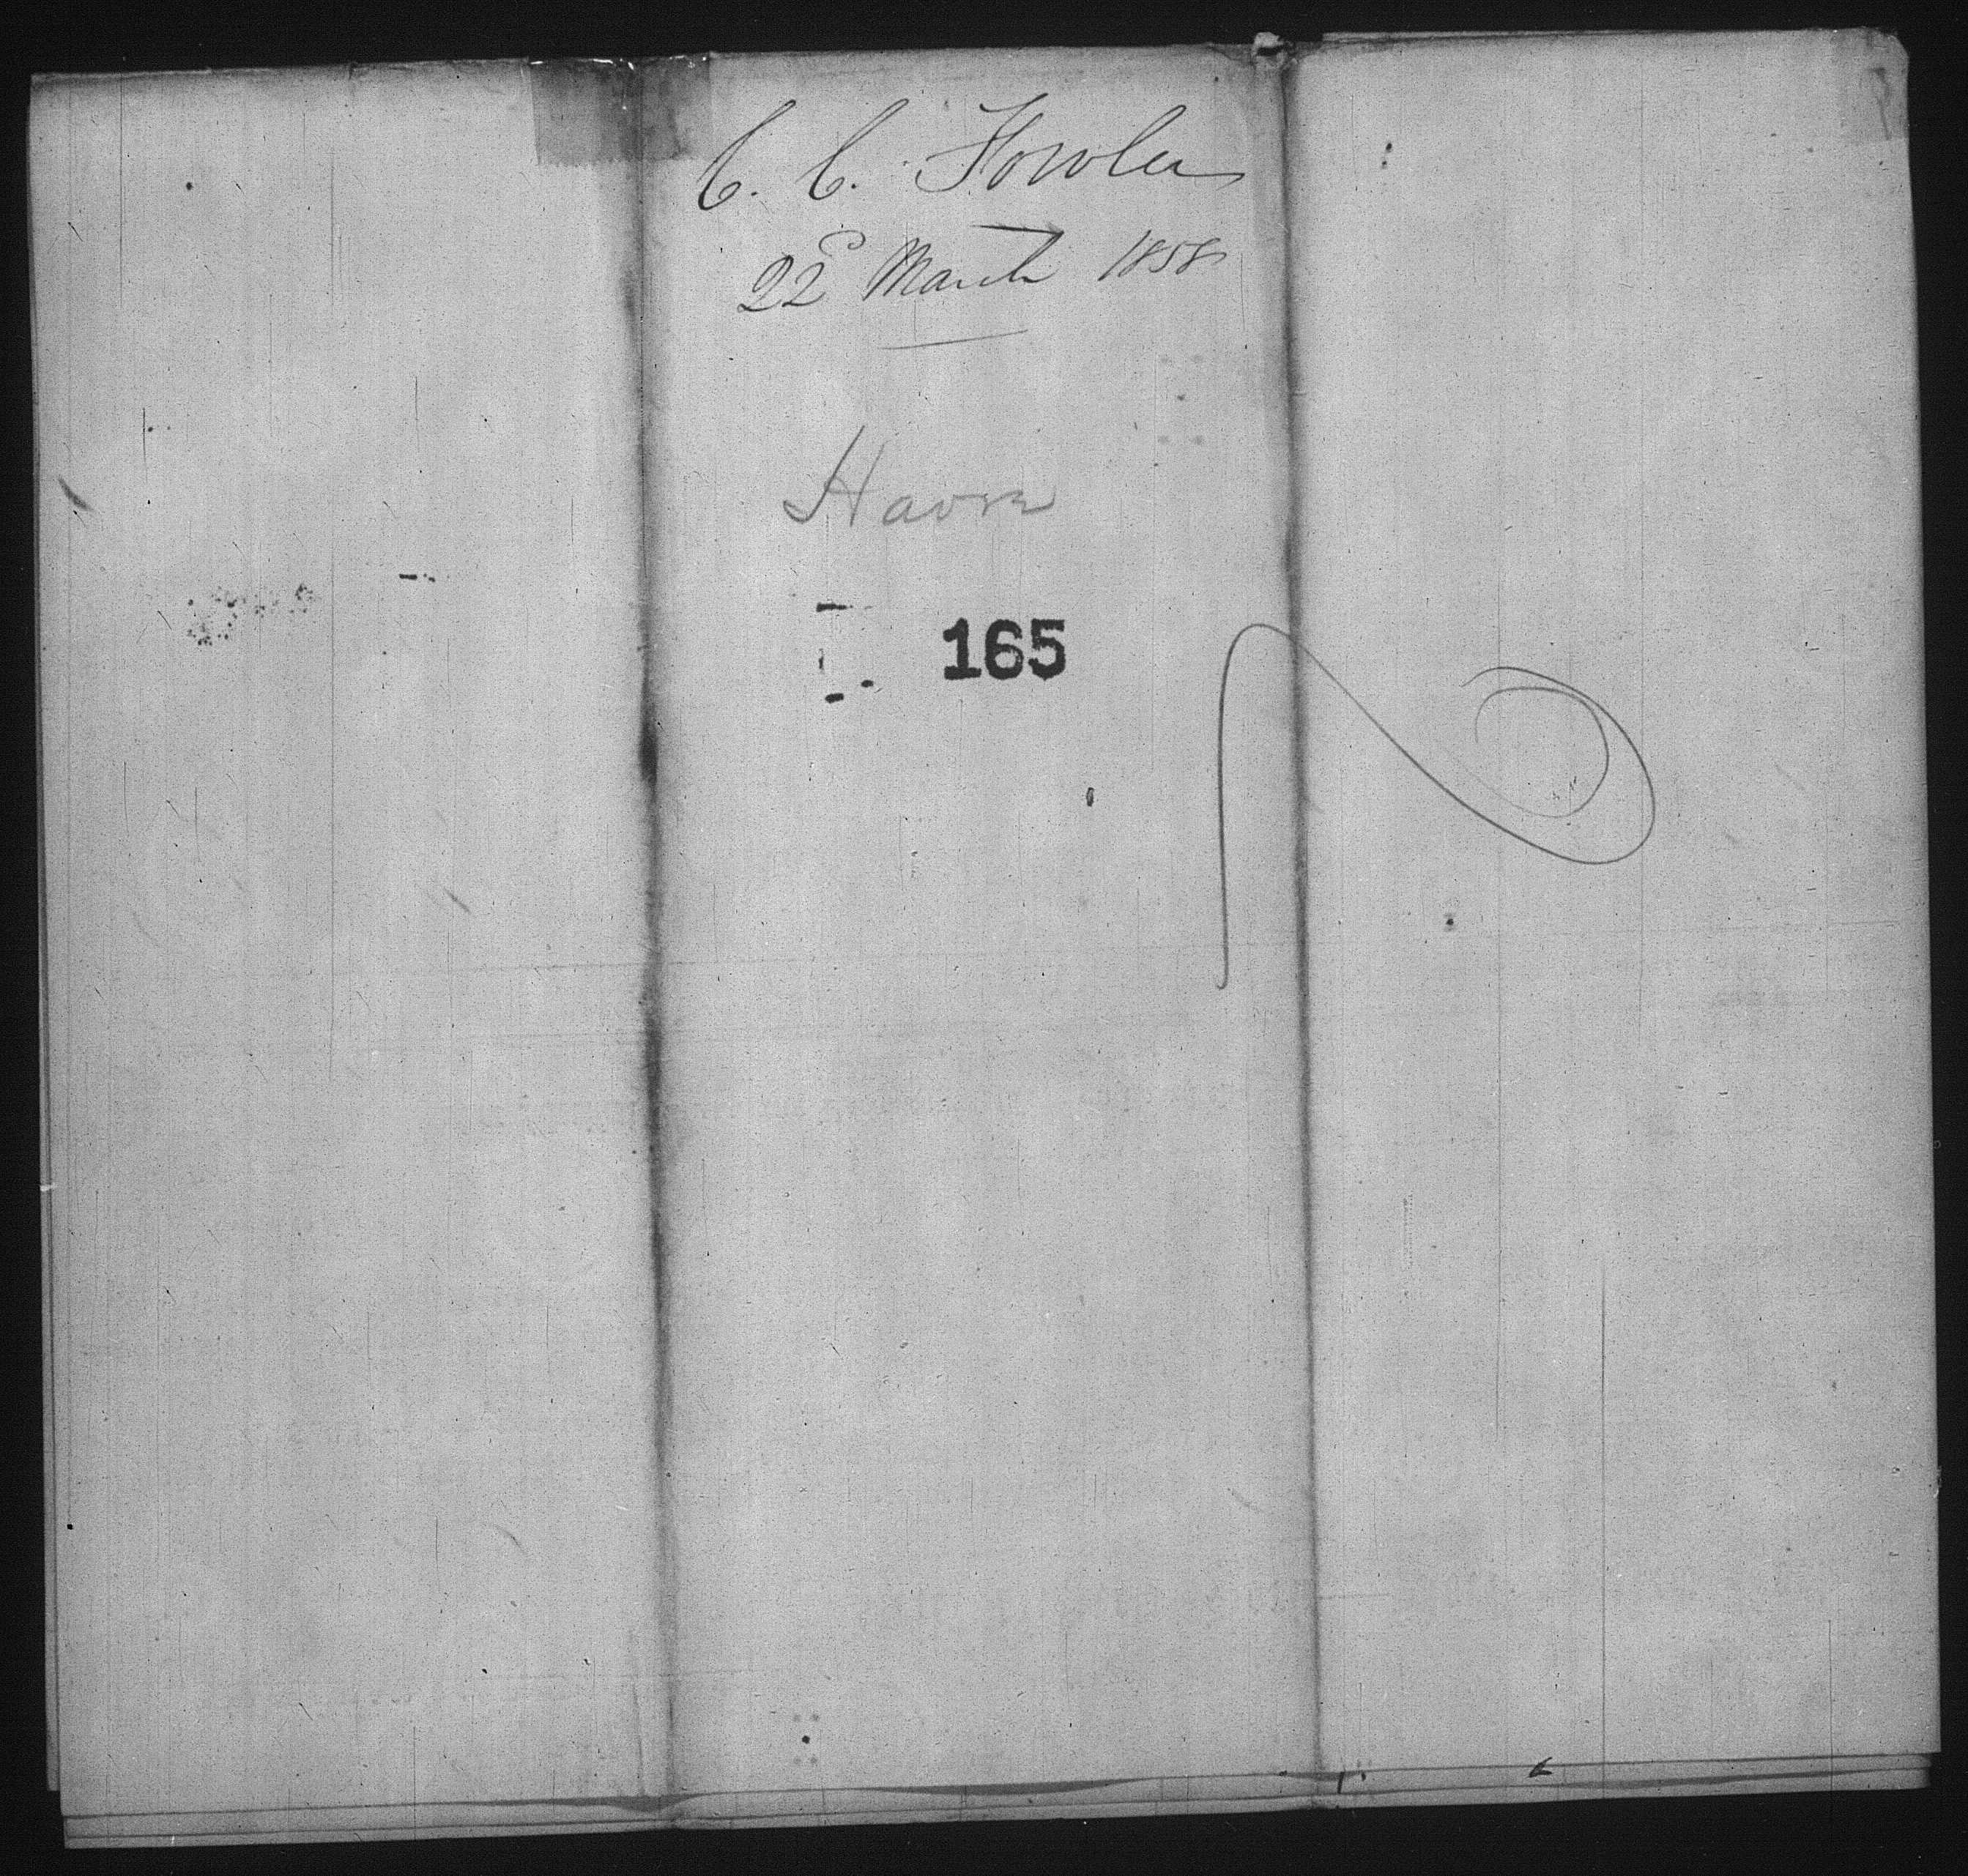 C. C. Fowler
22d March 1858
Havre
165